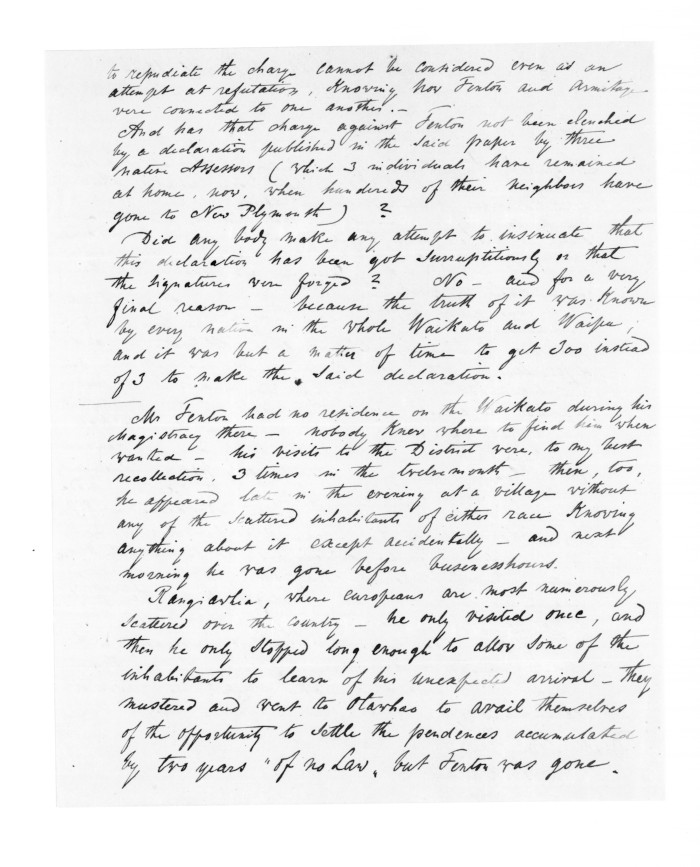 to repudiate the charge cannot be considered even as an
attempt at refutation, Knowing how Fenton and Armitage
were connected to one another. –
And has that charge against Fenton not been clenched
by a declaration published in the said paper by three
native Assessors (which 3 individuals have remained
at home, now, when hundreds of their neighbors have
gone to New Plymouth) ?
Did any body make any attempt to insinuate that
this declaration has been got surruptitiously or that
the signatures were forged ? No – and for a very
final reason – because the truth of it was Known
by every native in the whole Waikato and Waipa,
and it was but a matter of time to get 300 instead
of 3 to make the said declaration.
Mr Fenton had no residence on the Waikato during his
Magistracy there – nobody Knew where to find him when
wanted – his visits to the District were, to my best
recollection, 3 times in the twelvemonth – then, too,
he appeared late in the evening at a village without
any of the scattered inhabitants of either race Knowing
anything about it except accidentally – and next
morning he was gone before businesshours.
Rangiawhia, where europeans are most numerously
scattered over the country – he only visited once, and
then he only stopped long enough to allow some of the
inhabitants to learn of his unexpected arrival – they
mustered and went to Otawhao to avail themselves
of the opportunity to settle the pendences accumulated
by two years "of no Law„ but Fenton was gone.